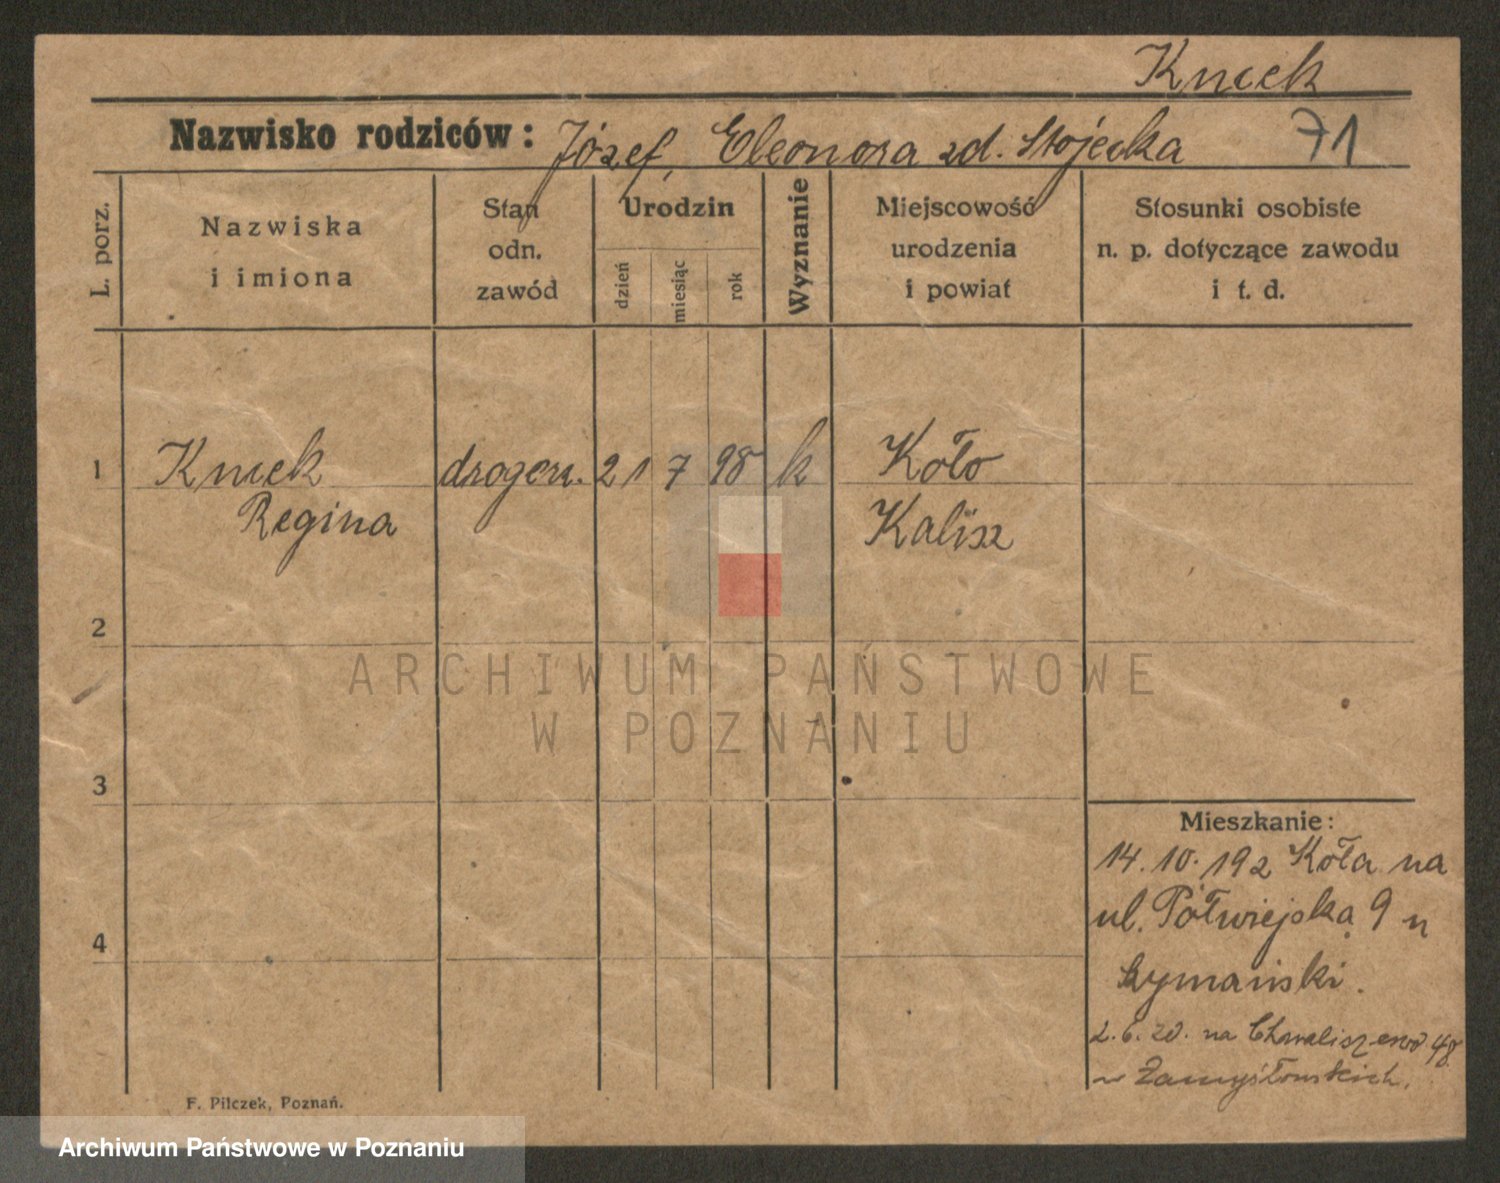 Kmek
Nazwisko rodziców: Józef, Eleonora zd. Stojecka 71
L. porz.
Nazwiska i imiona
Stan odn. zawód
Urodzin
dzień
miesiąc
rok
Wyznanie
Miejscowość urodzenia i powiat
Stosunki osobiste n. p. dotyczące zawodu i t. d.
1 drogerz. 21 7 98 k Koło
Regina Kalisz
2
ARCHIWUM PAŃSTWOWE
W POZNANIU
3
4
Mieszkanie:
14.10.192 Koła na
ul. Półwiejska 9 u
2.6.20. na Chwaliszewo 48
F. Pilczek, Poznań.
Archiwum Państwowe w Poznaniu